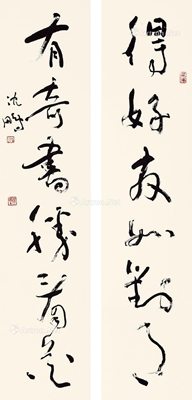 得好友如對月
有奇書勝看花
沈鵬